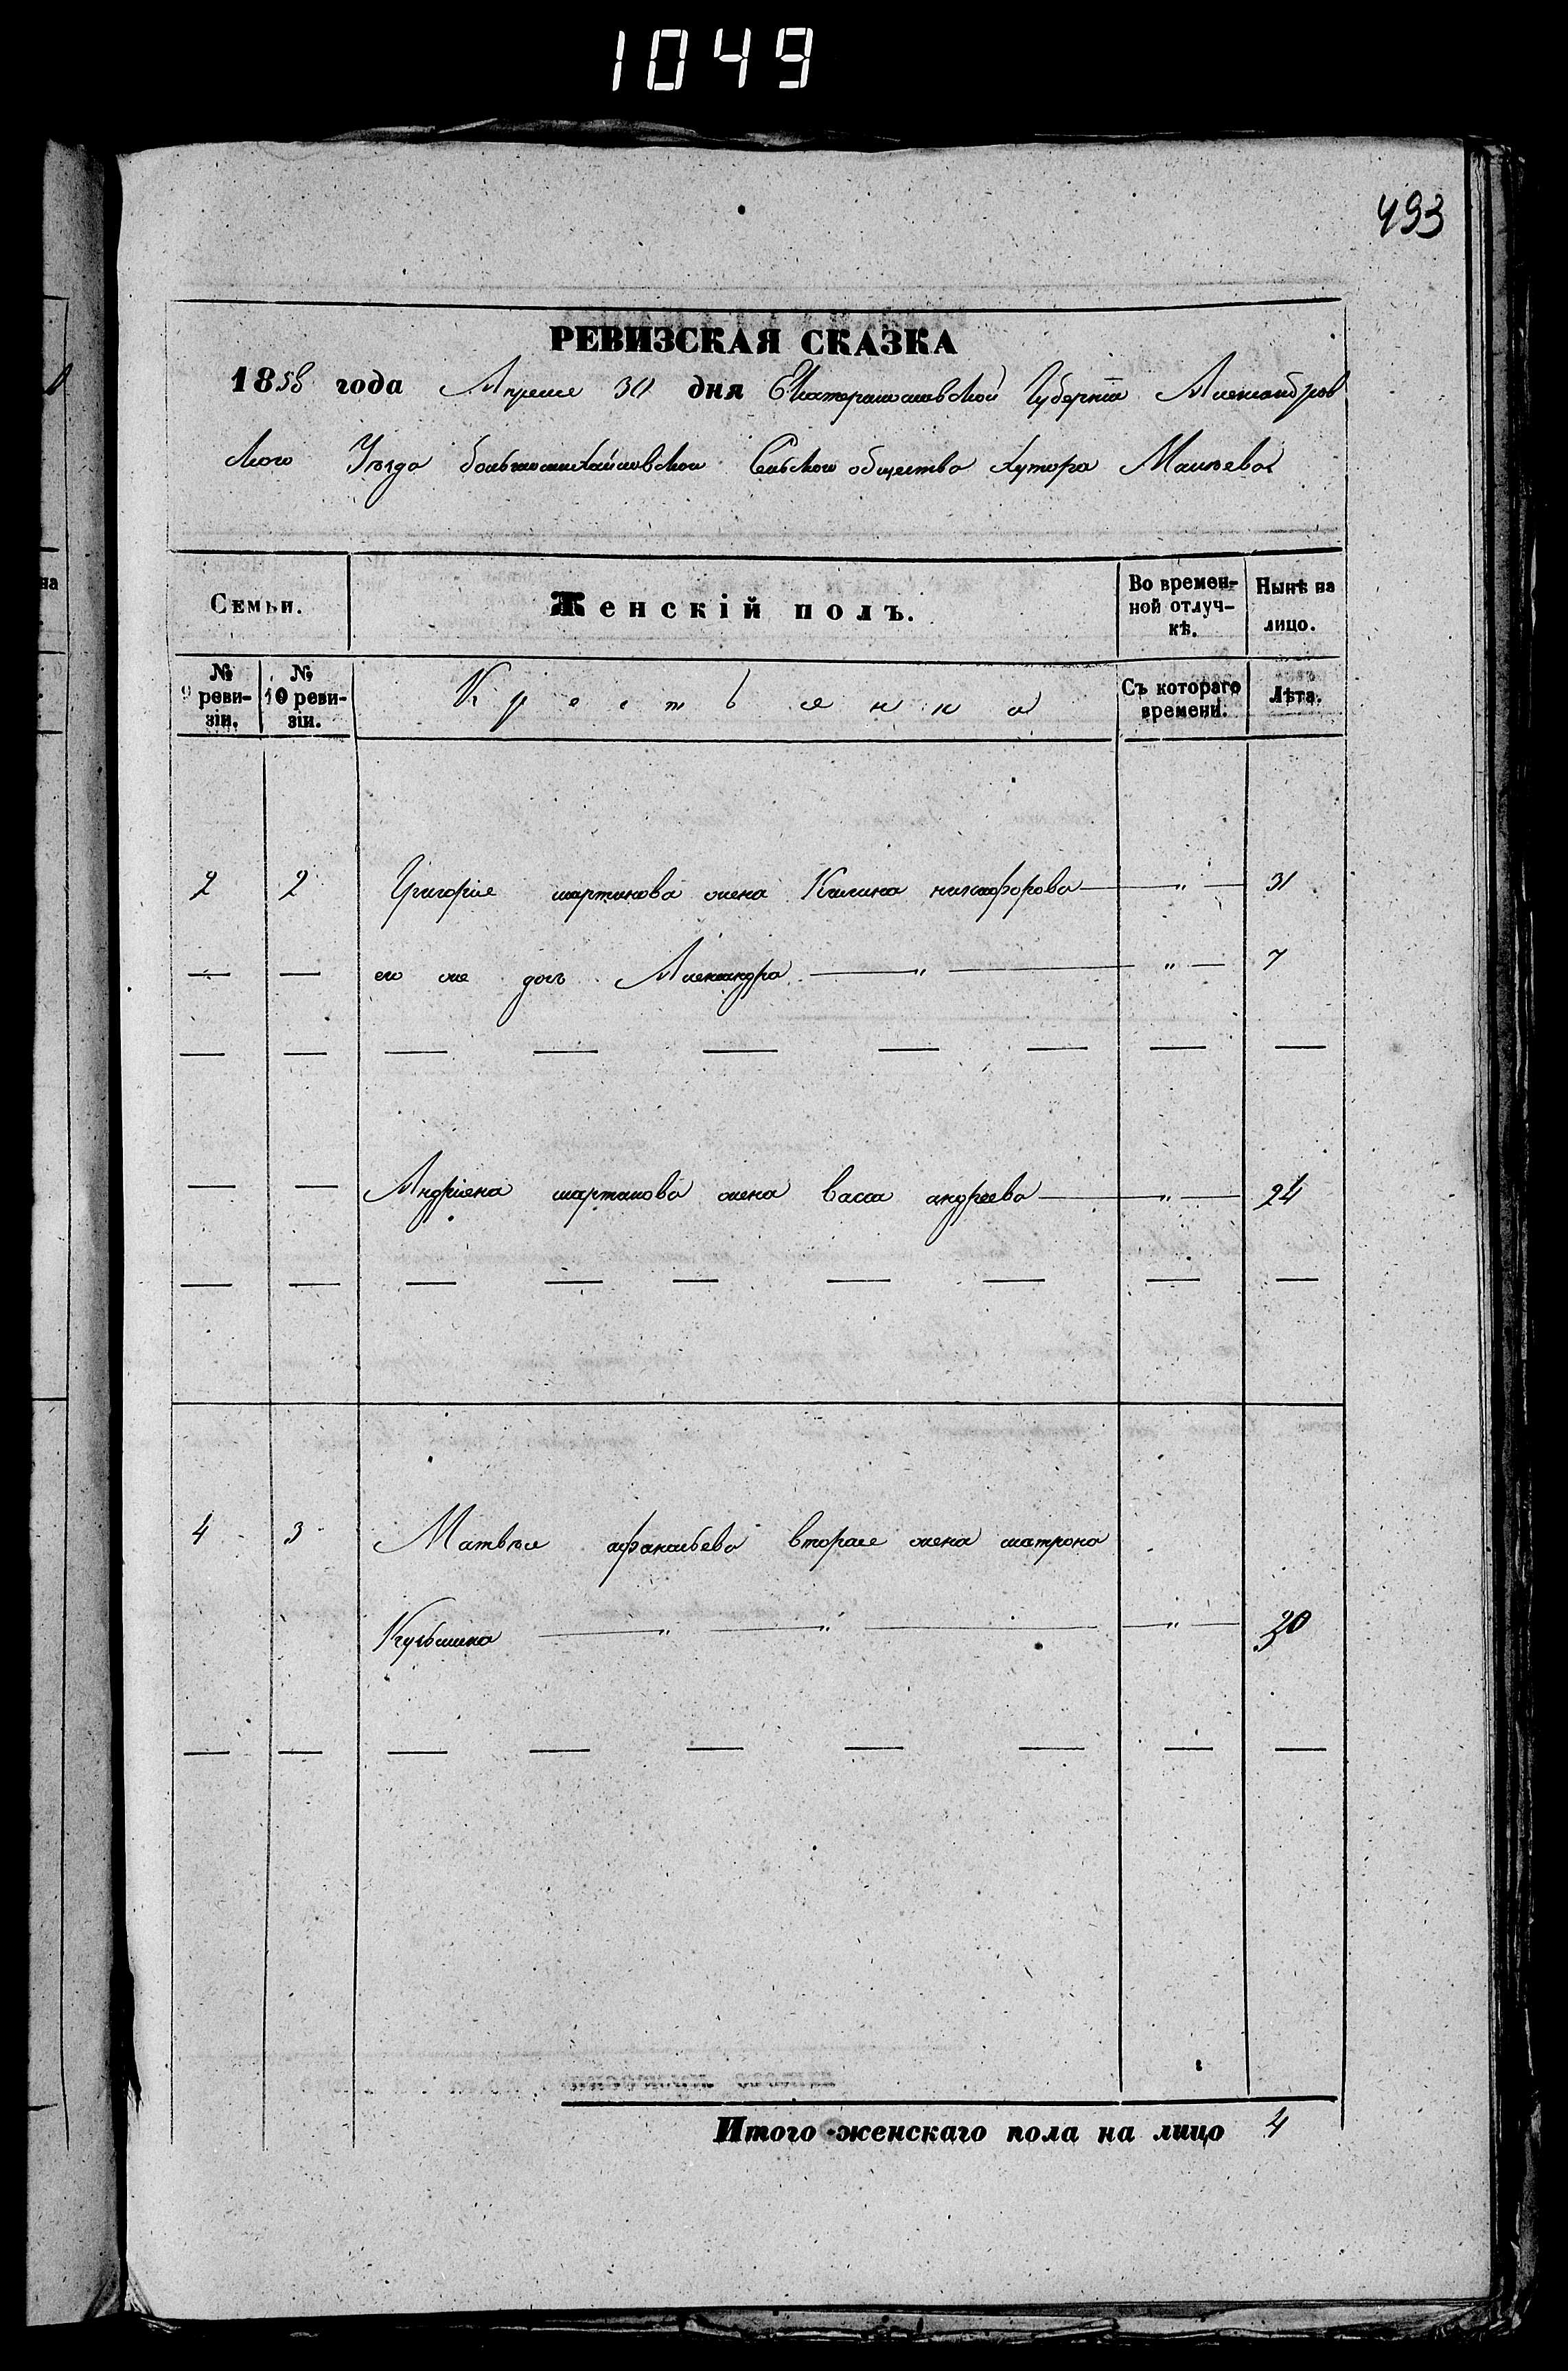 1049
493
РЕВИЗСКАЯ СКАЗКА
1858 года Апреля 30 дня Екатеринославской Губернїи Александров
ского Уѣзда большемихайловского Сельского общества хутора
Семьи.
Женскій полъ.
Во времен-
ной отлуч-
кѣ.
Нынѣ на
лицо.
№
9 реви-
зіи.
№
10 реви-
зіи.
Крестьянка
Съ котораго
времени.
Лѣта.
2 2 Григорїя мартинова жена Килина никифорова — " — 31
— — его же дочь Александра — " — " — 7
— — — — — — — — —
— — Андрїяна мартинова жена васса андреева — " — 24
— — — — — — — — —
4 3 Матвѣя афанасьева вторая жена матрона
— " — " — " — 30
— — — — — — — — —
Итого женскаго пола на лицо 4